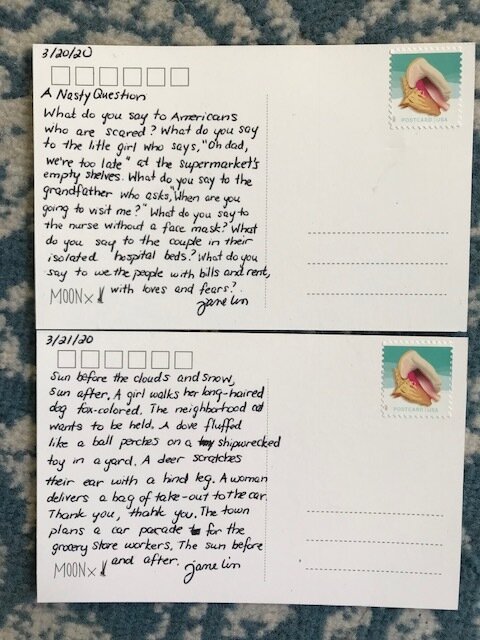 3/20/20
POSTCARD/USA
A Nasty Question
What do you say to Americans
who are scared? What do you say
to the little girl who says, "Oh dad,
we're too late" at the supermarket's
empty shelves. What do you say to the
grandfather who asks, "When are you
going to visit me?" What do you say to
the nurse without a face mask? What
do you say to the couple in their
isolated hospital beds? What do you
say to we the people with bills and rent,
with loves and fears?
MOON
Jane Lin
3/21/20
POSTCARD/USA
Sun before the clouds and snow,
sun after. A girl walks her long-haired
dog fox-colored. The neighborhood
wants to be held. A dove fluffed
like a ball perches on a shipwrecked
toy in a yard. A deer scratches
their ear with a hind leg. A woman
delivers a bag of take-out to the car.
Thank you, thank you. The town
plans a car parade for the
grocery store workers. The sun before
and after.
MOON
Jane Lin